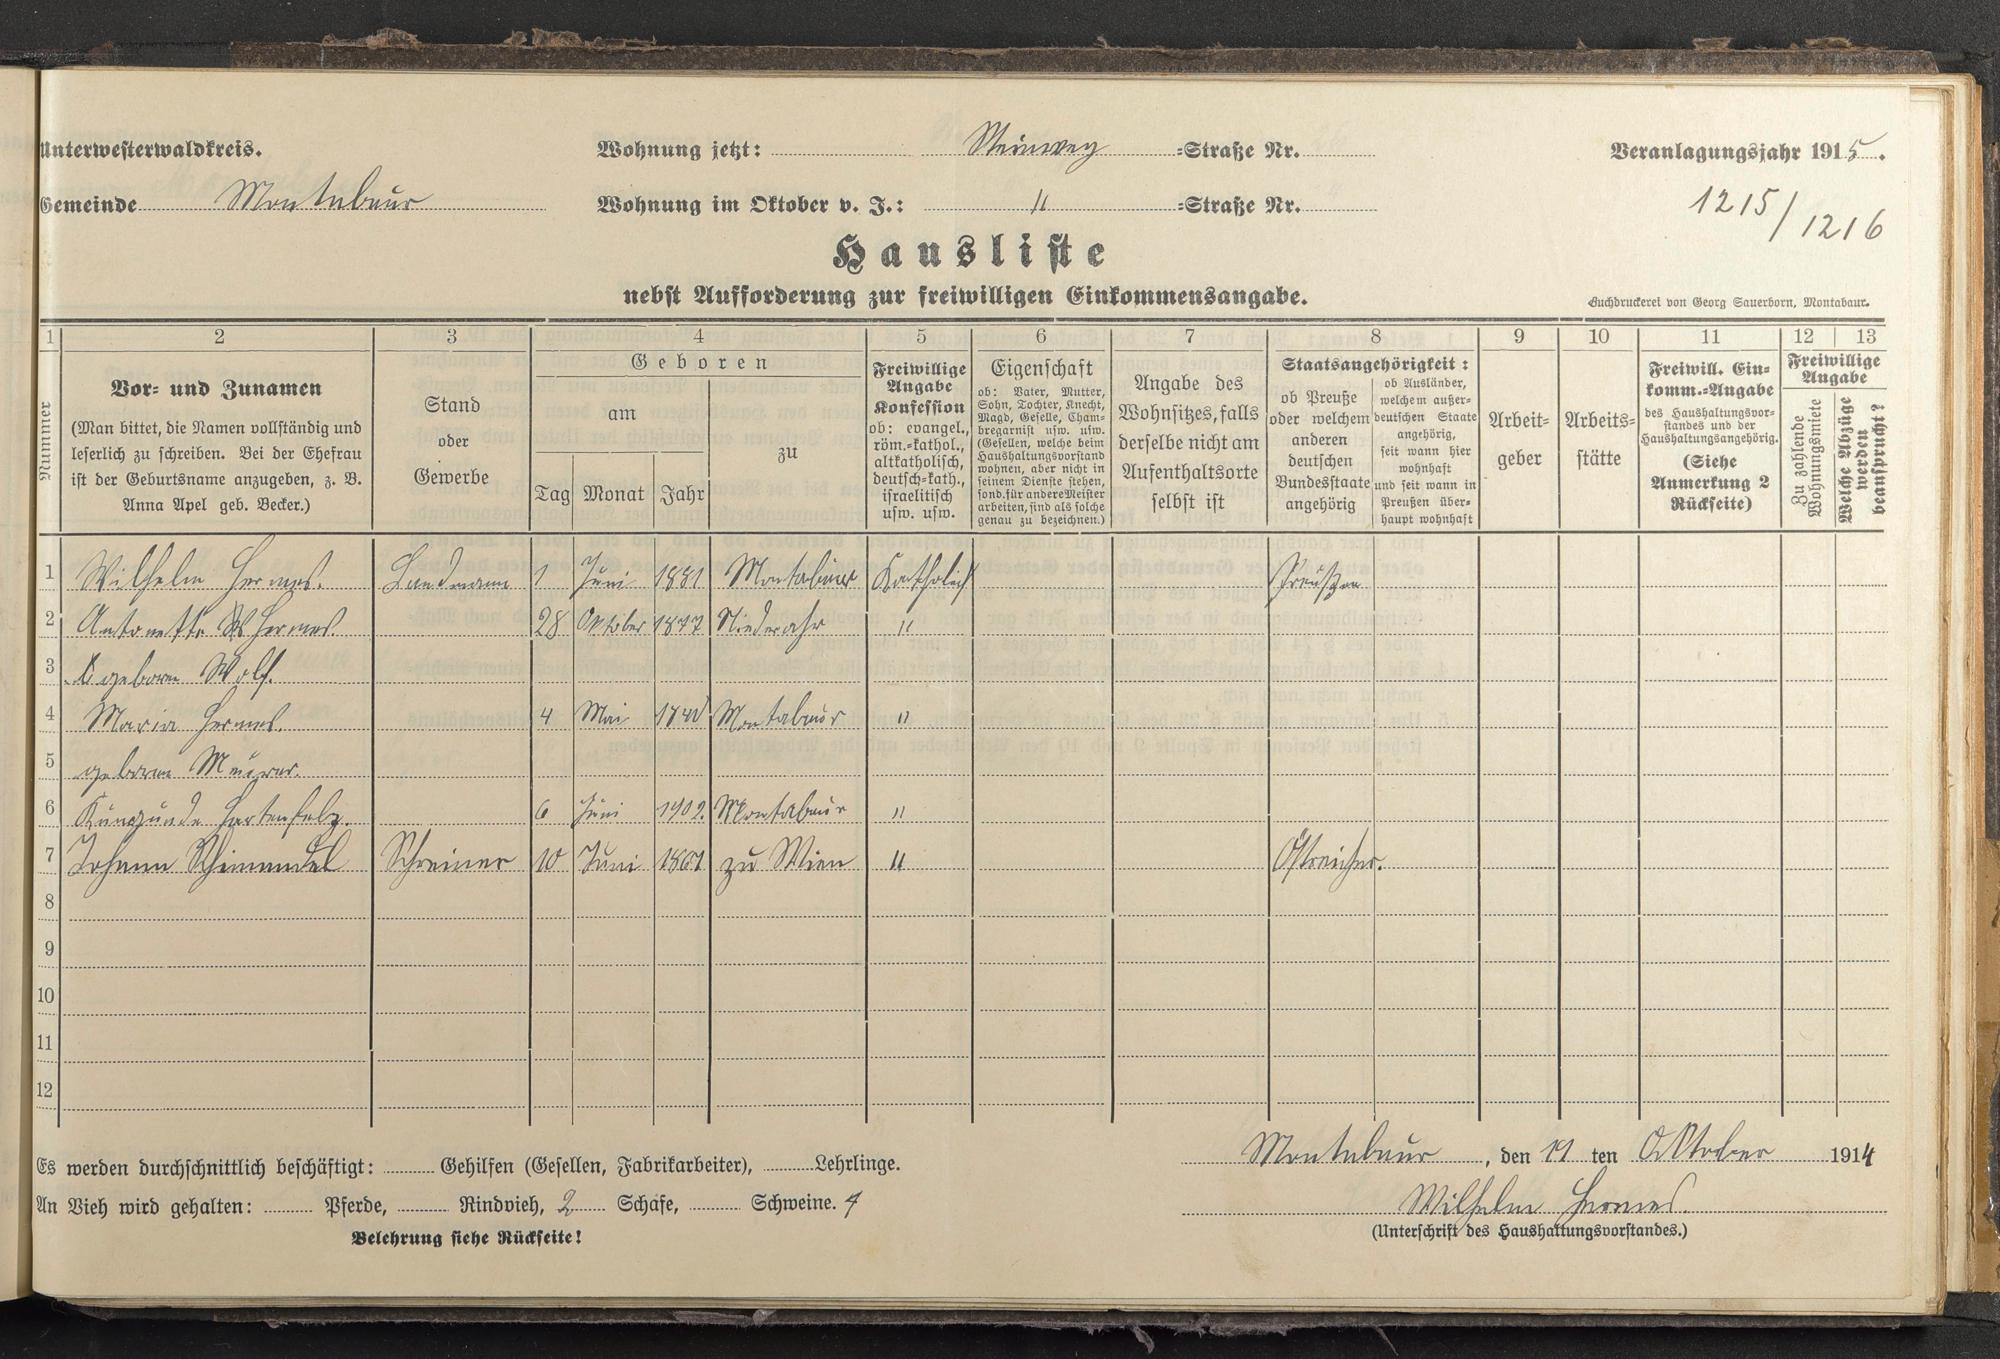 Unterwesterwaldkreis.
Wohnung jetzt: Steinweg =Straße Nr.
Veranlagungsjahr 1915.
Gemeinde Montabaur
Wohnung im Oktober v. J.: " =Straße Nr.
1215/1216
Hausliste
nebst Aufforderung zur freiwilligen Einkommensangabe.
Buchdruckerei von Georg Sauerborn, Montabaur.
1 2 3 4 5 6 7 8 9 10 11 12 13
Nummer
Vor- und Zunamen
(Man bittet, die Namen vollständig und
leserlich zu schreiben. Bei der Ehefrau
ist der Geburtsname anzugeben, z. B.
Anna Apel geb. Becker.)
Stand
oder
Gewerbe
Geboren
am
Tag Monat Jahr
zu
Freiwillige
Angabe
Konfession
ob: evangel.,
röm.-kathol.,
altkatholisch,
deutsch-kath.,
israelitisch
usw. usw.
Eigenschaft
ob: Vater, Mutter,
Sohn, Tochter, Knecht,
Magd, Geselle, Cham-
bregarnist usw. usw.
(Gesellen, welche beim
Haushaltungsvorstand
wohnen, aber nicht in
seinem Dienste stehen,
sond. für andere Meister
arbeiten, sind als solche
genau zu bezeichnen.)
Angabe des
Wohnsitzes, falls
derselbe nicht am
Aufenthaltsorte
selbst ist
Staatsangehörigkeit:
ob Preuße
oder welchem
anderen
deutschen
Bundesstaate
angehörig
ob Ausländer,
welchem außer-
deutschen Staate
angehörig,
seit wann hier
wohnhaft
und seit wann in
Preußen über-
haupt wohnhaft
Arbeit-
geber
Arbeits-
stätte
Freiwill. Ein-
komm.-Angabe
des Haushaltungsvor-
standes und der
Haushaltungsangehörig.
(Siehe
Anmerkung 2
Rückseite)
Freiwillige
Angabe
Zu zahlende
Wohnungsmiete
Welche Abzüge
werden
beansprucht?
1 Wilhelm Hermes. Landmann 1 Juni 1881 Montabaur Katholisch Preußen
2 Antonette Hermes. 28 Oktober 1877 Niederahr "
3 geboren Wolf.
4 Maria Hermes. 4 Mai Montabaur "
5 geboren Meurer.
6 Kunegunde Hartenfels. 6 Juni 1902. Montabaur "
7 Johann Schreiner 10 Juni 1861 zu Wien " Östreicher.
8
9
10
11
12
Es werden durchschnittlich beschäftigt: Gehilfen (Gesellen, Fabrikarbeiter), Lehrlinge.
Montabaur, den 19 ten Oktober 1914
An Vieh wird gehalten: Pferde, Rindvieh, 2 Schafe, Schweine. 4
Wilhelm Hermes.
(Unterschrift des Haushaltungsvorstandes.)
Belehrung siehe Rückseite!